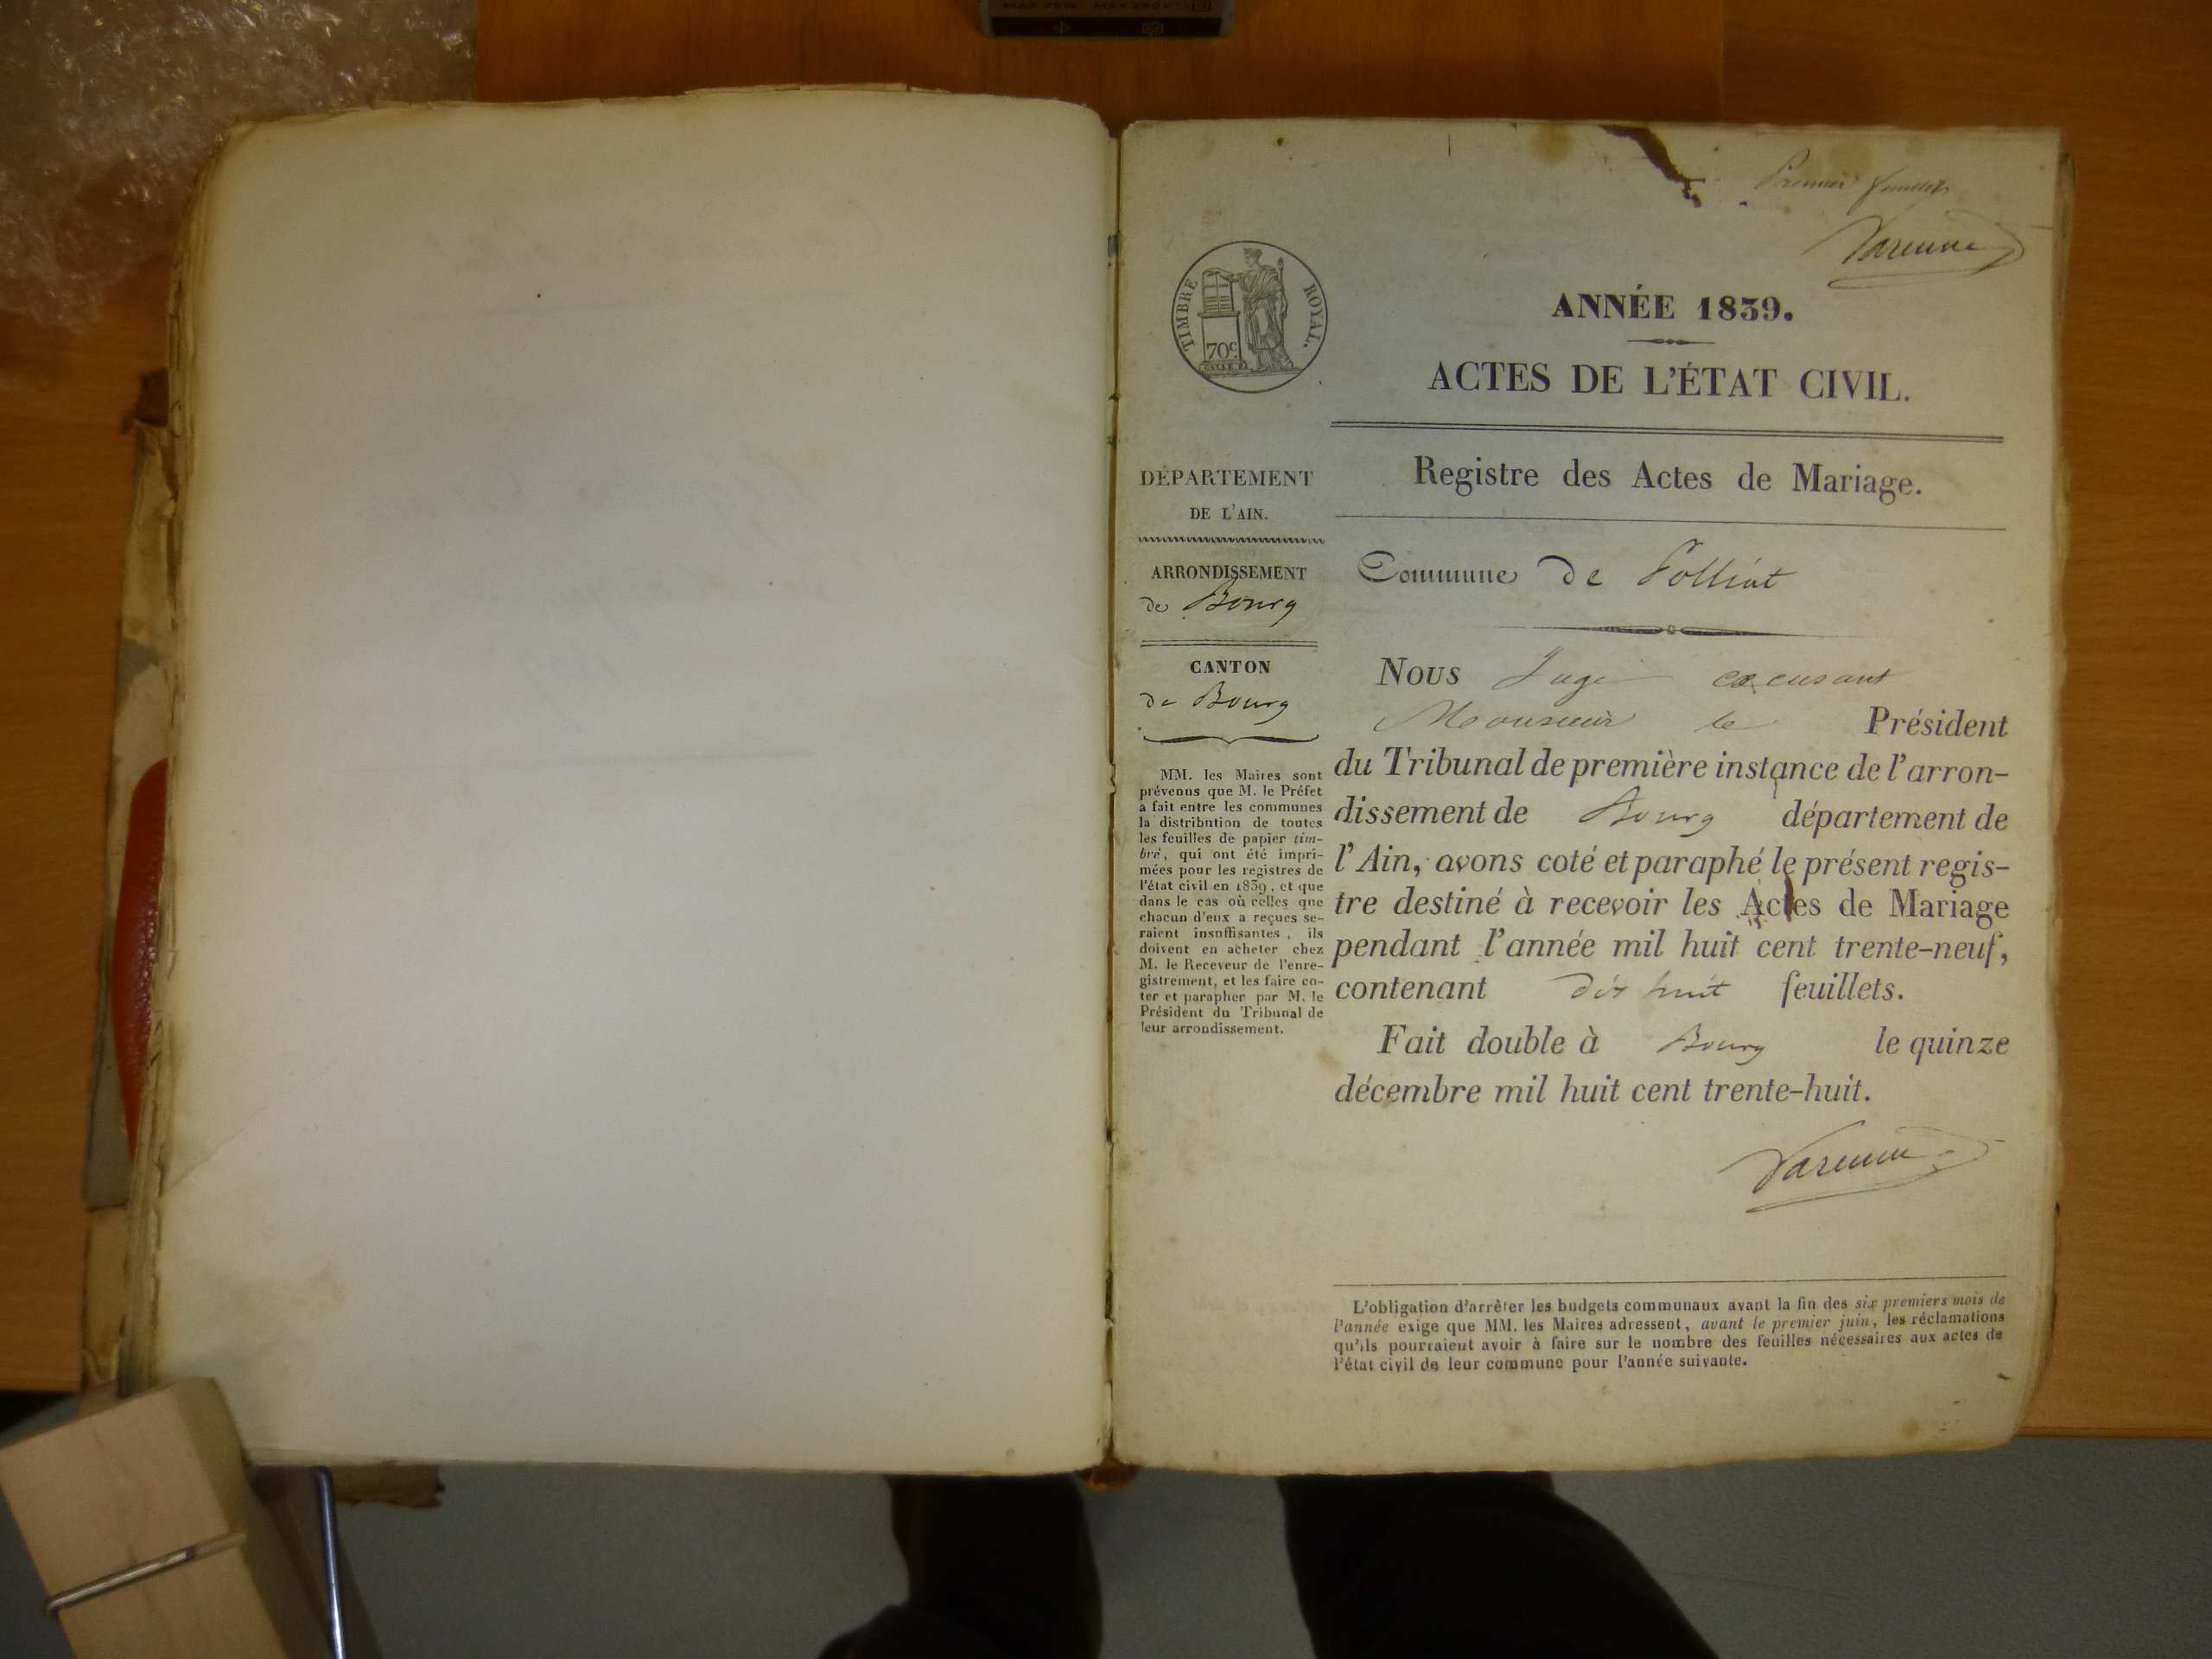 Premier feuillet
Varenne
TIMBRE ROYAL.
70c
ANNÉE 1839.
ACTES DE L'ÉTAT CIVIL.
Registre des Actes de Mariage.
DÉPARTEMENT
DE L'AIN.
ARRONDISSEMENT
de Bourg
CANTON
de Bourg
MM. les Maires sont
prévenus que M. le Préfet
a fait entre les communes
la distribution de toutes
les feuilles de papier tim-
bré, qui ont été impri-
mées pour les registres de
l'état civil en 1839, et que
dans le cas où celles que
chacun d'eux a reçues se-
raient insuffisantes, ils
doivent en acheter chez
M. le Receveur de l'enre-
gistrement, et les faire co-
ter et parapher par M. le
Président du Tribunal de
leur arrondissement.
Commune de Polliat
Nous Juge excusant
Monsieur le Président
du Tribunal de première instance de l'arron-
dissement de Bourg département de
l'Ain, avons coté et paraphé le présent regis-
tre destiné à recevoir les Actes de Mariage
pendant l'année mil huit cent trente-neuf,
contenant dix huit feuillets.
Fait double à Bourg le quinze
décembre mil huit cent trente-huit.
Varenne
L'obligation d'arrêter les budgets communaux avant la fin des six premiers mois de
l'année exige que MM. les Maires adressent, avant le premier juin, les réclamations
qu'ils pourraient avoir à faire sur le nombre des feuilles nécessaires aux actes de
l'état civil de leur commune pour l'année suivante.